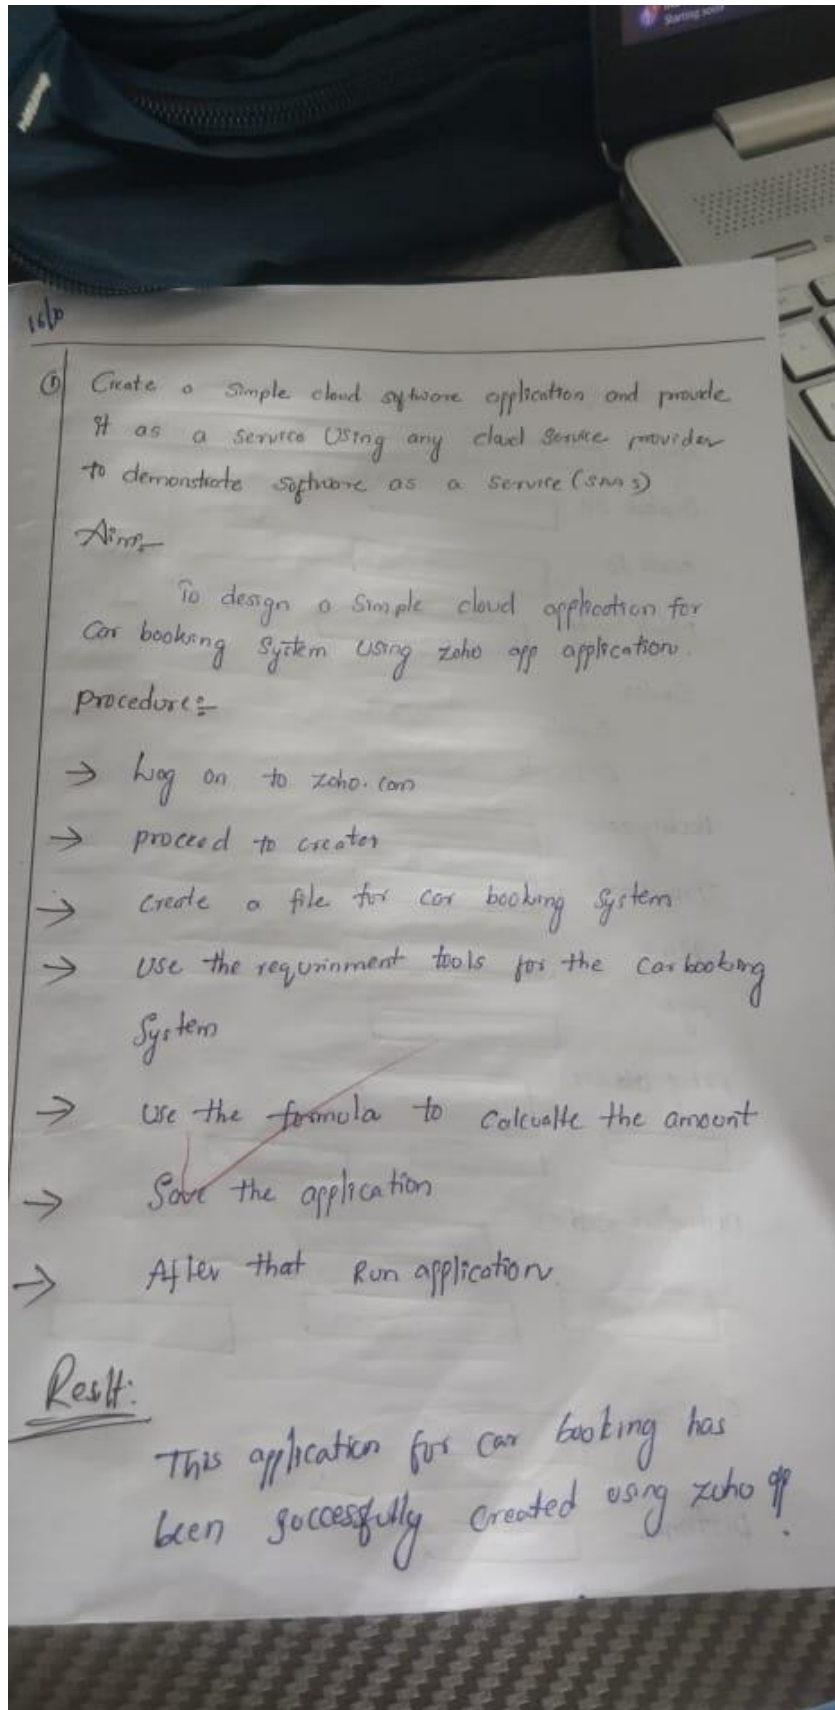 Starting soon
16/10
① Create a simple cloud software application and provide
it as a service Using any cloud Service provider
to demonstrate software as a service (SAAS)
Aim:-
To design a simple cloud application for
Car booking System using zoho app application.
procedure:-
→ Log on to zoho.com
→ proceed to creator
→ create a file for car booking System
→ Use the requrinment tools for the car booking
System
→ Use the formula to calcualte the amount
→ Save the application
→ After that Run application
Reslt:
This application for car booking has
been successfully created using zoho app.